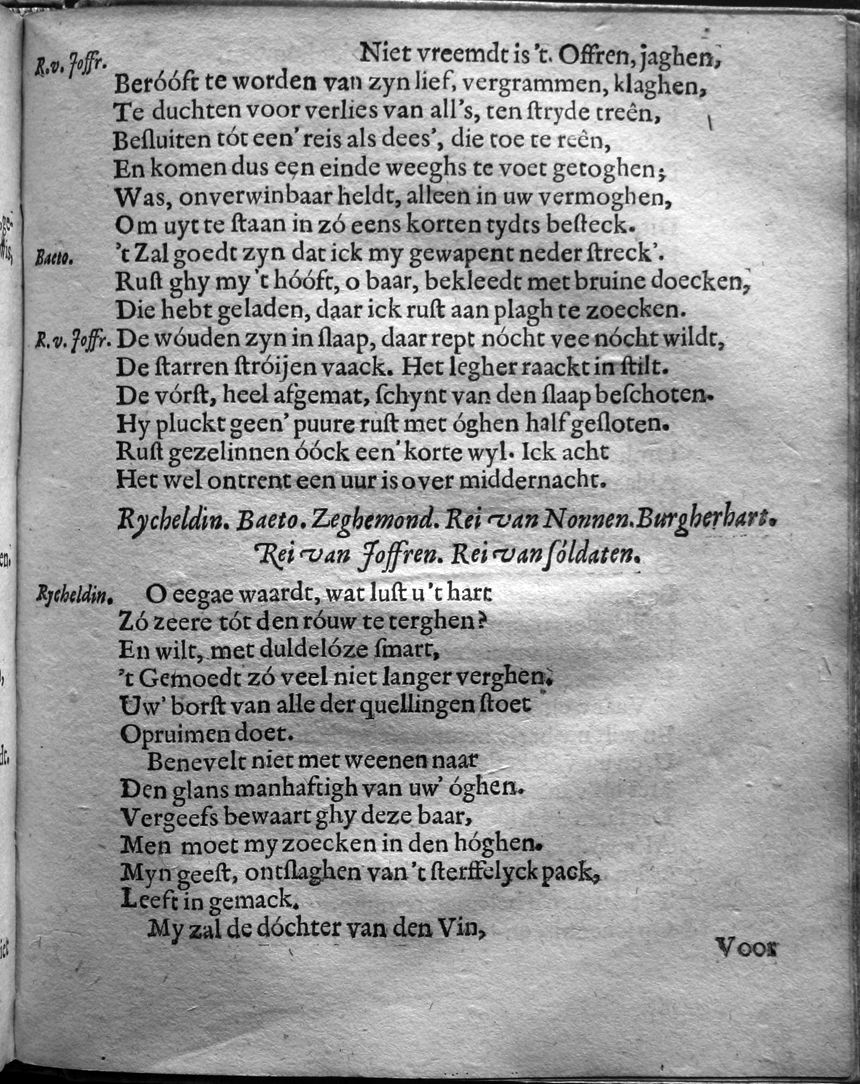 R.v. Joffr. Niet vreemdt is 't. Offren, jaghen,
Beróóft te worden van zyn lief, vergrammen, klaghen,
Te duchten voor verlies van all's, ten ſtryde treên,
Beſluiten tót een' reis als dees', die toe te reên,
En komen dus een einde weeghs te voet getoghen;
Was, onverwinbaar heldt, alleen in uw vermoghen,
Om uyt te ſtaan in zó eens korten tydts beſteck.
Baeto. 't Zal goedt zyn dat ick my gewapent neder ſtreck'.
Ruſt ghy my 't hóóft, o baar, bekleedt met bruine doecken,
Die hebt geladen, daar ick ruſt aan plagh te zoecken.
R.v. Joffr. De wóuden zyn in ſlaap, daar rept nócht vee nócht wildt,
De ſtarren ſtróijen vaack. Het legher raackt in ſtilt.
De vórſt, heel afgemat, ſchynt van den ſlaap beſchoten.
Hy pluckt geen' puure ruſt met óghen half geſloten.
Ruſt gezelinnen óóck een' korte wyl. Ick acht
Het wel ontrent een uur is over middernacht.
Rycheldin. Baeto. Zeghemond. Rei van Nonnen. Burgherhart.
Rei van Joffren. Rei van ſóldaten.
Rycheldin. O eegae waardt, wat luſt u 't hart
Zó zeere tót den róuw te terghen?
En wilt, met duldelóze ſmart,
't Gemoedt zó veel niet langer verghen.
Uw' borſt van alle der quellingen ſtoet
Opruimen doet.
Benevelt niet met weenen naar
Den glans manhaftigh van uw' óghen.
Vergeefs bewaart ghy deze baar,
Men moet my zoecken in den hóghen.
Myn geeſt, ontſlaghen van 't ſterffelyck pack,
Leeft in gemack.
My zal de dóchter van den Vin,
Voor